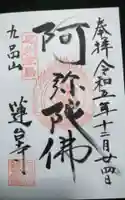 奉拝 令和五年十二月廿四日
阿弥陀佛
九品山
蓮台寺